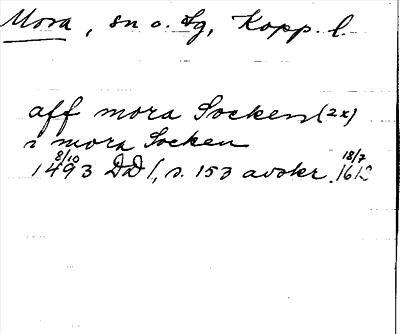 Mora, sn o. sg, Kopp. l.
aff mora Socken (2x)
i mora Socken
8/10 18/7
1493 DD 1, s. 153 avskr. 1612